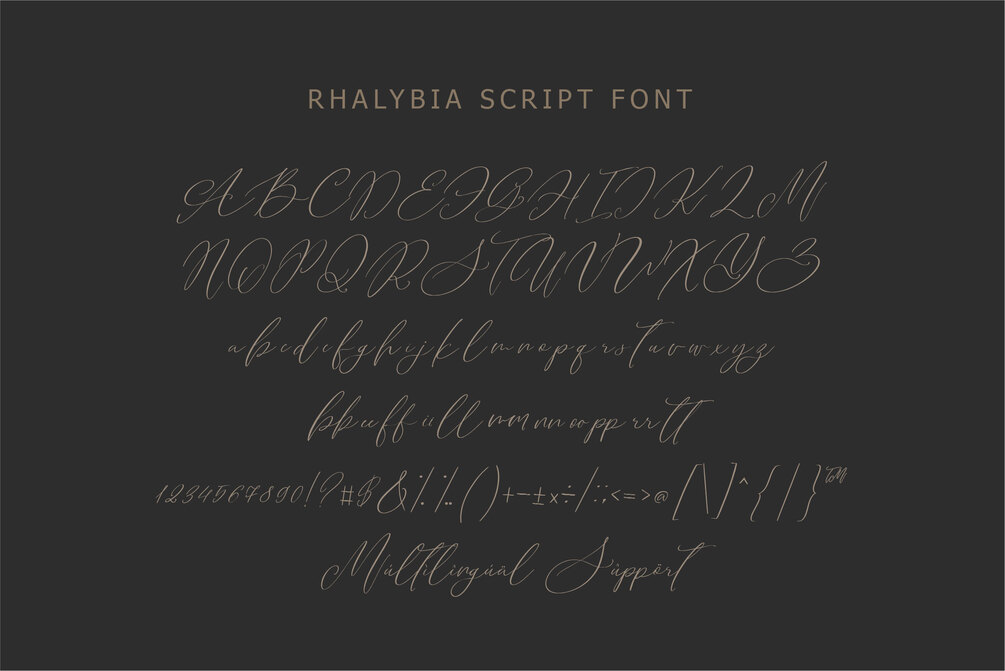 RHALYBIA SCRIPT FONT
ABCDEFGHIJKLM
NOPQRSTUVWXYZ
abcdefghijklmnopqrstuvwxyz
bb ee ff ii ll mm nn oo pp rr tt
1234567890!?#$&⁒%()+-±x÷/:;,<=>@[\]^{|}™
Múltilingúäl Sùppört